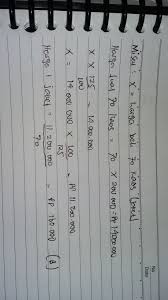 Misal : x = harga beli 70 kaos (pcs)
Harga jual 70 kaos = 70 x 200.000 = Rp 14.000.000
x x 125/100 = 14.000.000
x = 14.000.000 x 100/125 = Rp 11.200.000
Harga 1 pcs = 11.200.000/70 = Rp 160.000 (B)